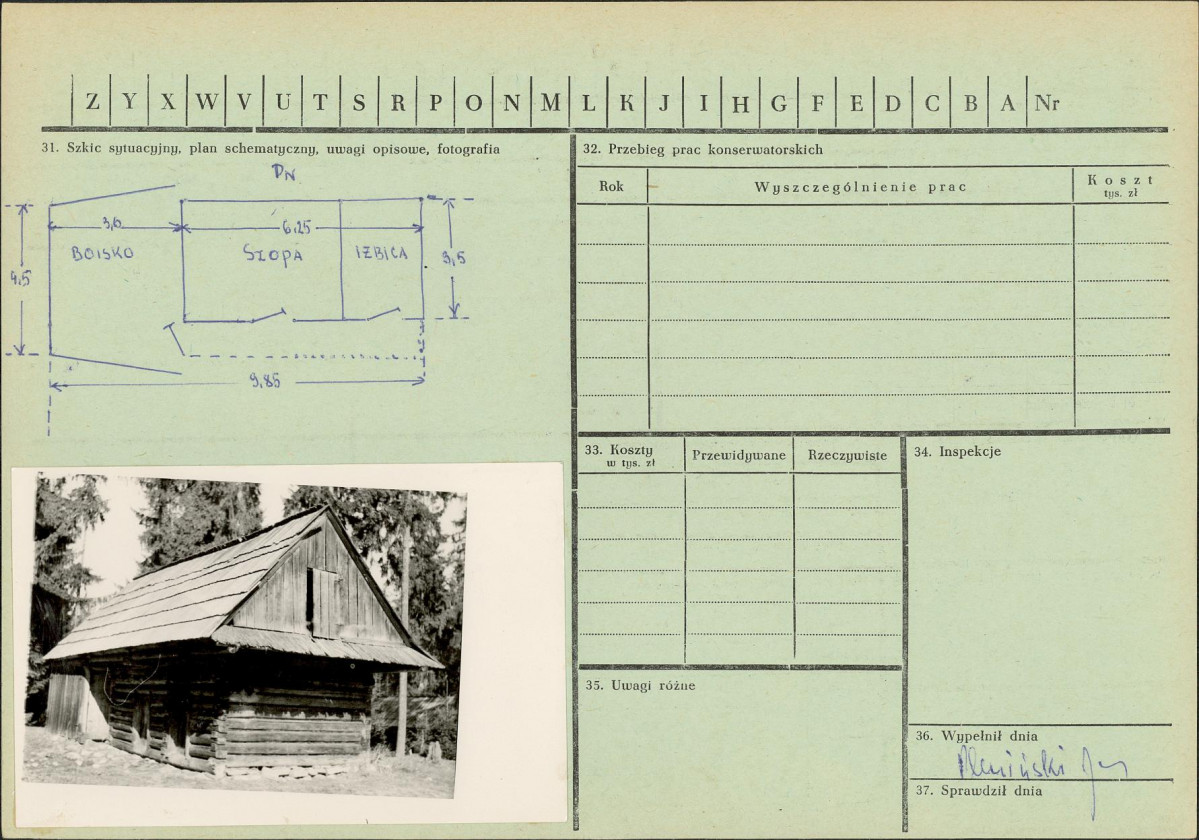 Z Y X W V U T S R P O N M L K J I H G F E D C B A Nr
31. Szkic sytuacyjny, plan schematyczny, uwagi opisowe, fotografia
PN
3,6
6,25
BOISKO
SZOPA
IZBICA
3,5
4,5
9,85
32. Przebieg prac konserwatorskich
Rok
Wyszczególnienie prac
Koszt
tys. zł
33. Koszty
w tys. zł
Przewidywane
Rzeczywiste
34. Inspekcje
35. Uwagi różne
36. Wypełnił dnia
37. Sprawdził dnia